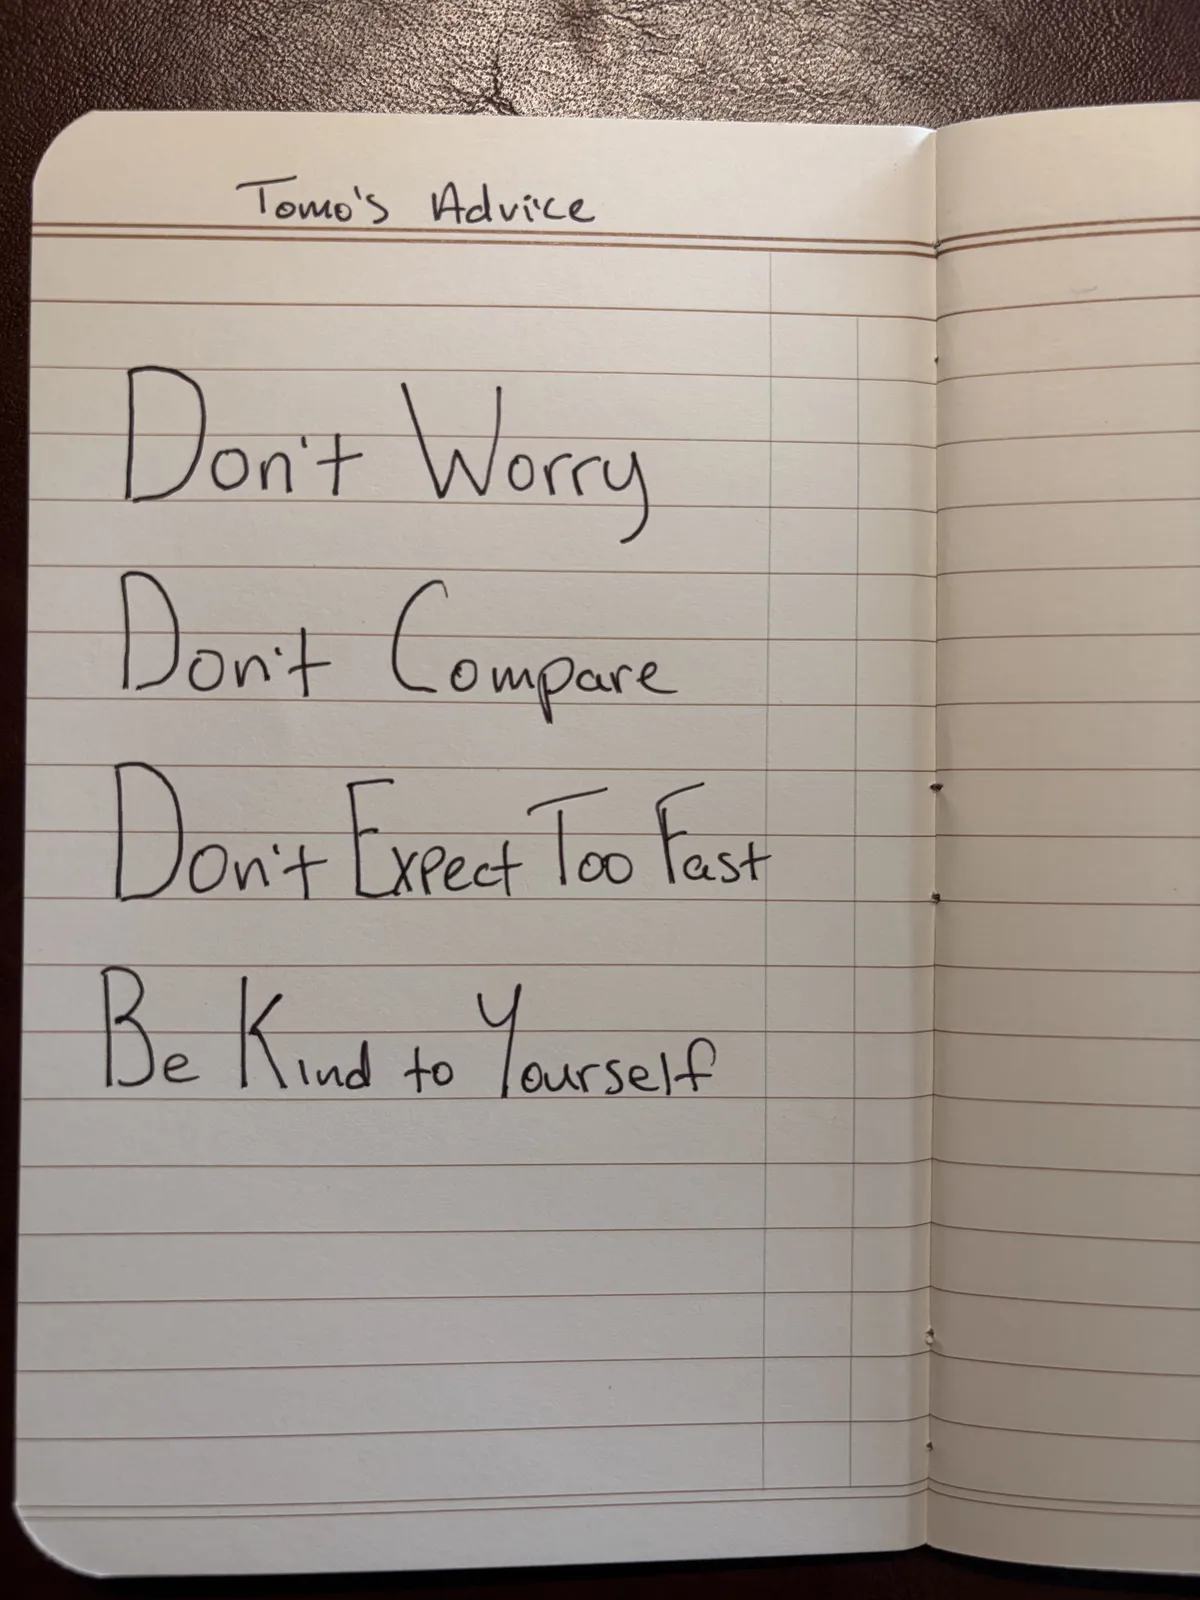 Tomo's Advice
Don't Worry
Don't Compare
Don't Expect Too Fast
Be Kind to Yourself